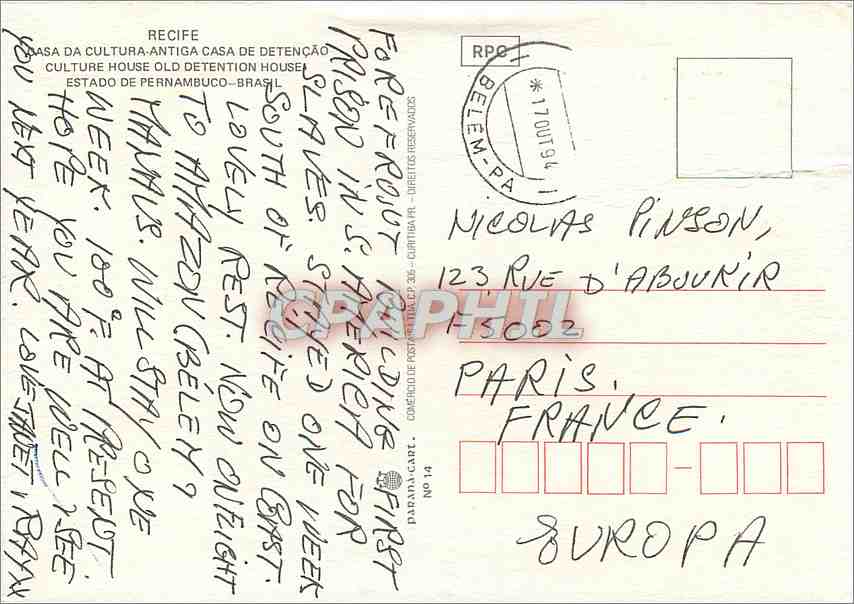 RECIFE
CASA DA CULTURA-ANTIGA CASA DE DETENÇÃO
CULTURE HOUSE OLD DETENTION HOUSE
ESTADO DE PERNAMBUCO—BRASIL
FOREFRONT BUILDING FIRST
PRISON IN S. AMERICA FOR
SLAVES. STAYED ONE WEEK
SOUTH OF RECIFE ON COAST.
LOVELY REST. NOW ON FLIGHT
TO AMAZON (BÉLEM) &
MANAUS. WILL STAY ONE
WEEK. 100°F. AT PRESENT.
HOPE YOU ARE WELL & SEE
YOU NEXT YEAR. LOVE JANET & RAY XX
PARANÁ-CART.
Nº 14
COMÉRCIO DE POSTAIS LTDA. C.P. 305 - CURITIBA PR. - DIREITOS RESERVADOS
RPC
* 17 OUT 94
BELÉM-PA
NICOLAS PINSON,
123, RUE D'ABOUKIR
F5002
PARIS.
FRANCE.
EUROPA
CPAPHIL